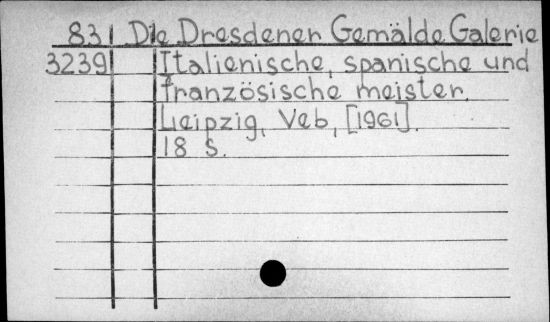 83 Die Dresdener Gemälde Galerie
3239 Italienische, spanische und
französische meister.
Leipzig, Veb, [1961].
18 S.